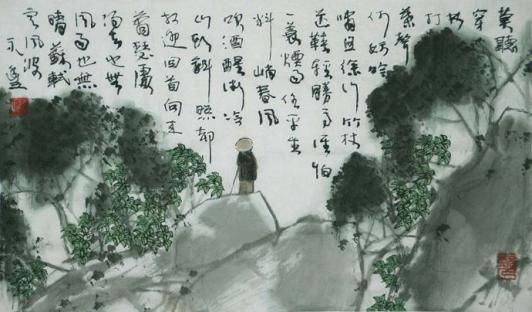 莫聽
穿
林
打
葉聲
何妨吟
嘯且徐行竹杖
芒鞋輕勝馬誰怕
一蓑煙雨任平生
料峭春風
吹酒醒微冷
山頭斜照却
相迎回首向來
蕭瑟處
歸去也無
風雨也無
晴蘇軾
定風波